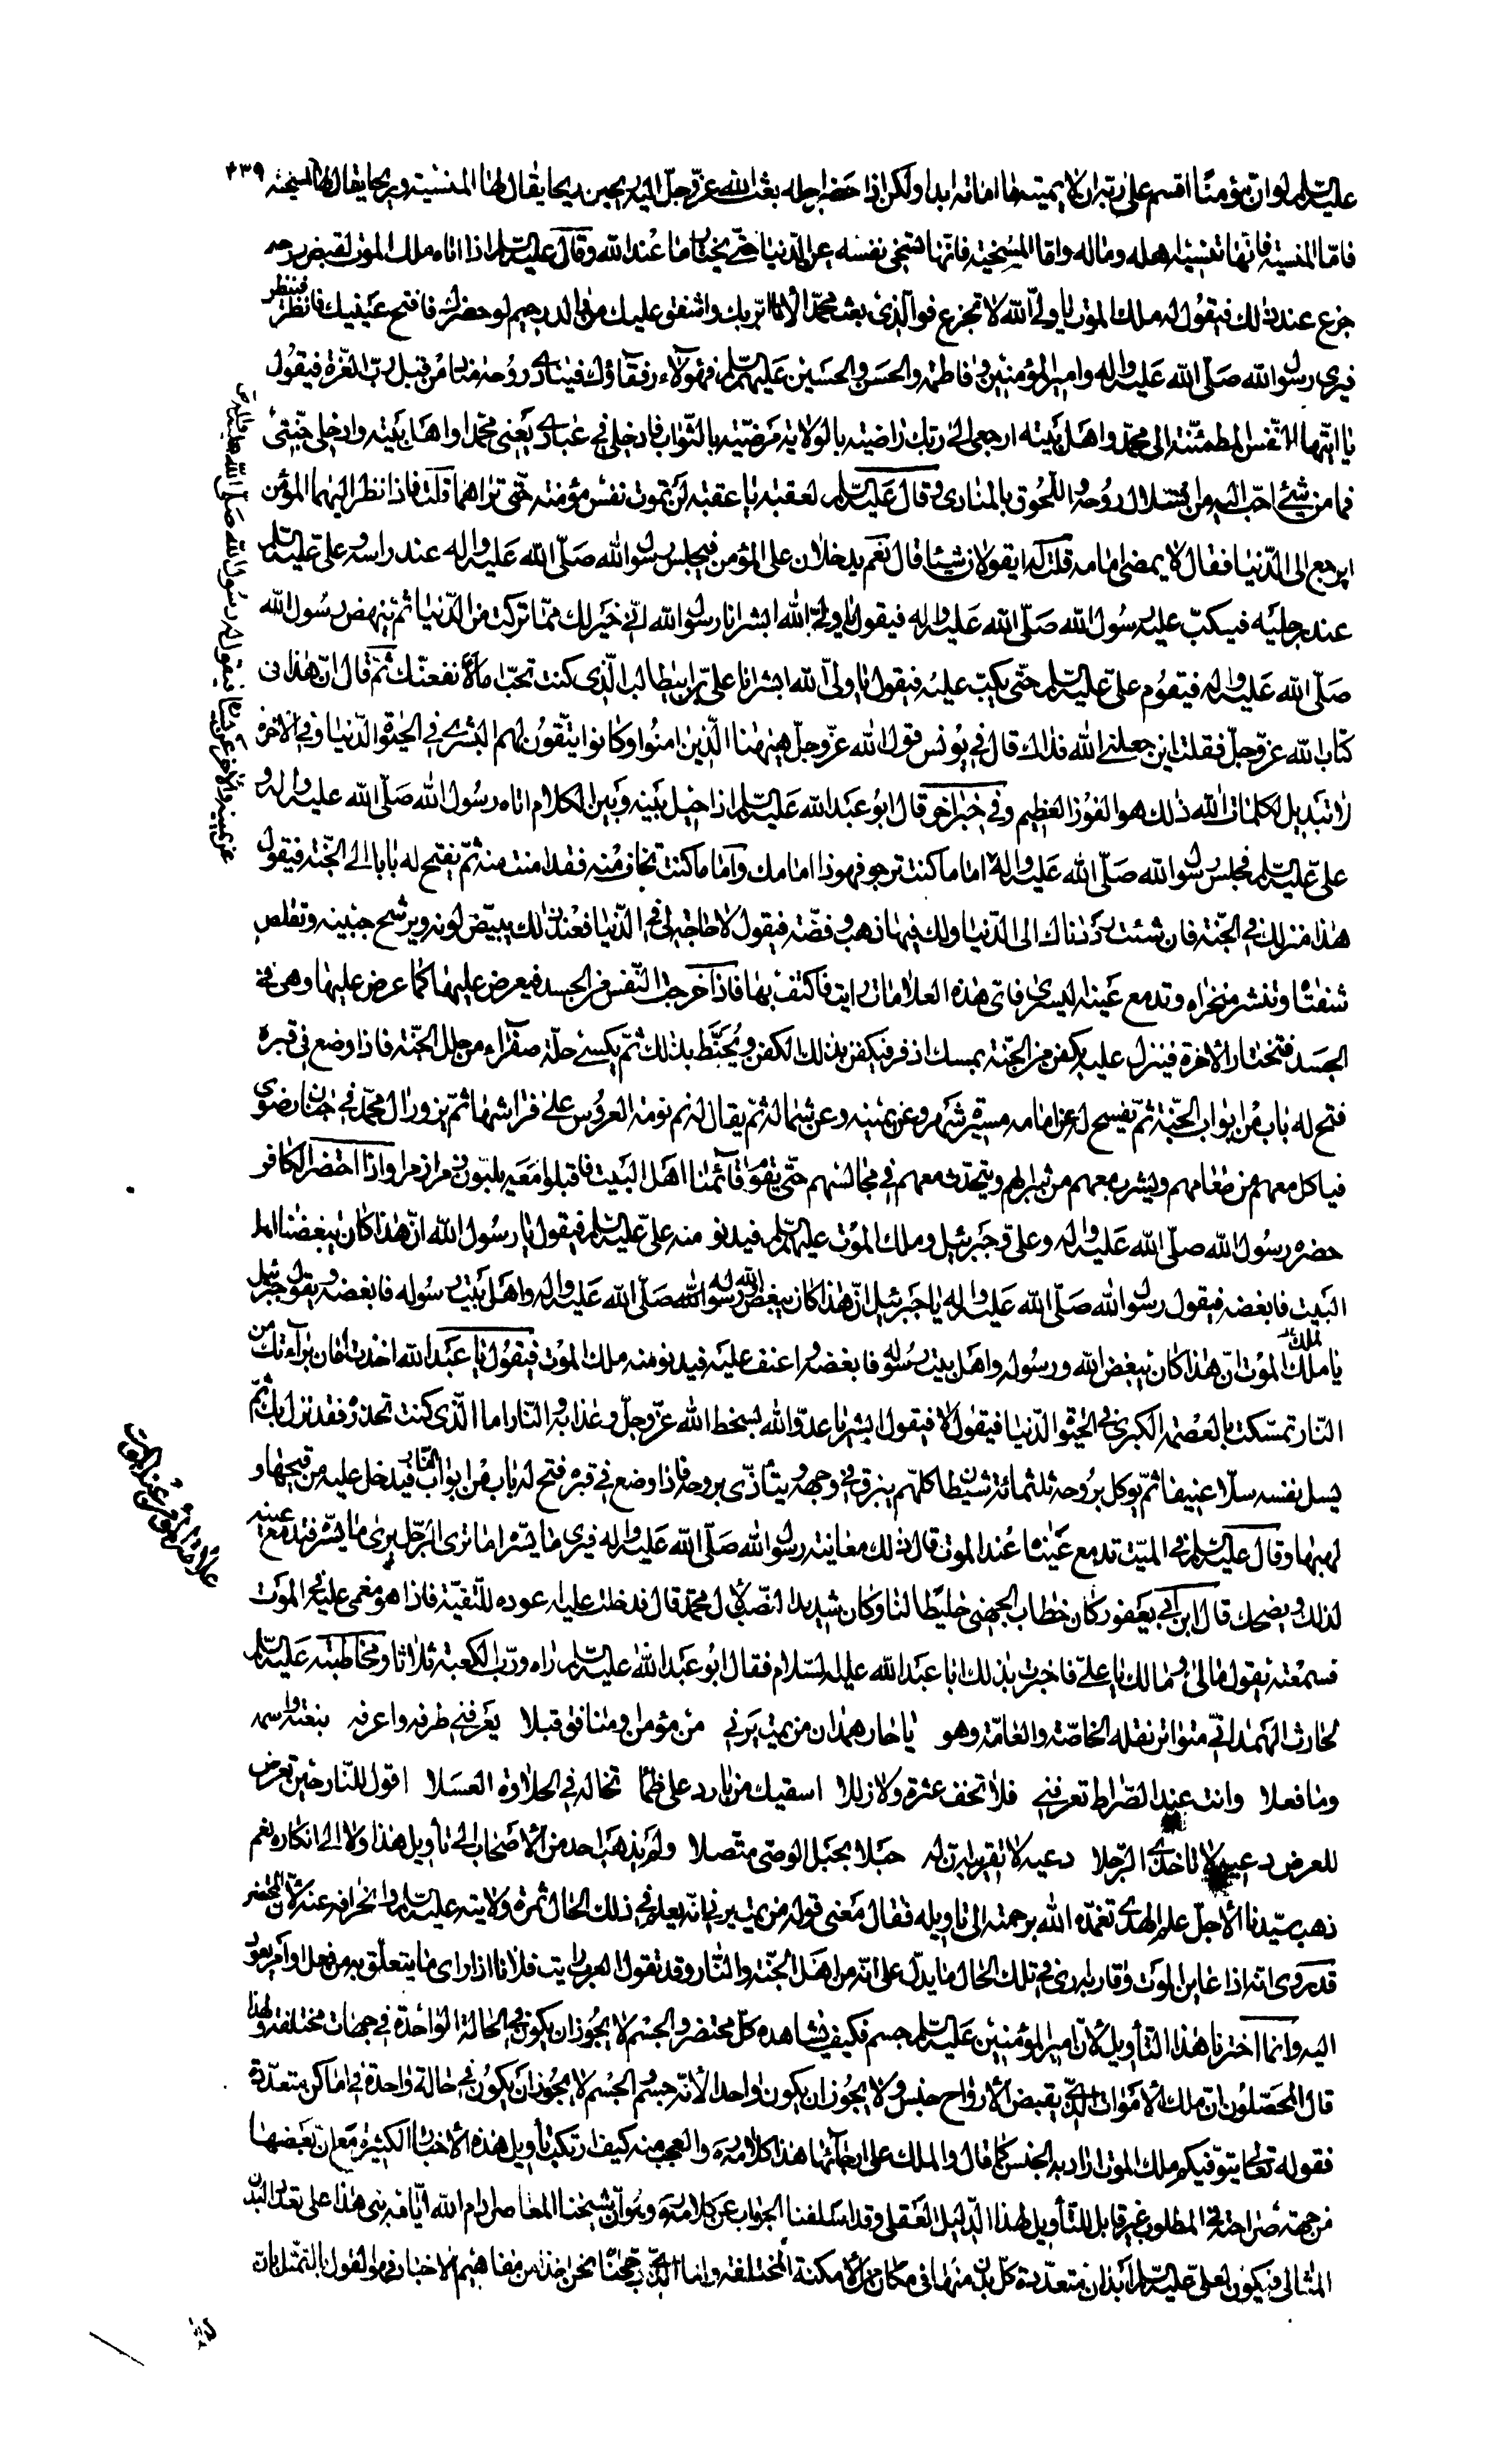 ٤٣٩
عليه السلام لو ان مؤمنا اقسم على ربه ان لا يميته ما اماته ابدا ولكن اذا حضر اجله بعث الله عز وجل اليه ريحين ريحا يقال لها المنسية وريحا يقال لها المسخية
فامّا المنسية فانها تنسيه اهله وماله وامّا المسخية فانّها تسخى نفسه عن الدّنيا حتّى يختار ما عند الله وقال عليه السلام اذا اتاه ملك الموت لقبض روحه
جزع عند ذلك فيقول له ملك الموت يا ولىّ الله لا تجزع فوالّذى بعث محمّدا لانا ابرّ بك واشفق عليك من الوالد رحيم لو حضرك فافتح عينيك فانظر فينظر
فيرى رسول الله صلّى الله عليه واله وامير المؤمنين وفاطمة والحسن والحسين عليهم السلام فهؤلاء رفقاؤك فينادى روحه مناد من قبل ربّ العزّة فيقول
يا ايّتها النّفس المطمئنّة الى محمّد واهل بيته ارجعى الى ربّك راضية بالولاية مرضيّة بالثّواب فادخلى فى عبادى يعنى محمّدا واهل بيته وادخلى جنّتى
فما من شئ احبّ اليه من استلال روحه واللّحوق بالمنادى وقال عليه السلام لعقبة يا عقبة لن تموت نفس مؤمنة حتّى تراهما قلت فاذا نظر اليهما المؤمن
ايرجع الى الدّنيا فقال لا يمضى امامه قلت له ايقولان شيئا قال نعم يدخلان على المؤمن فيجلس رسول الله صلّى الله عليه واله عند راسه وعلىّ عليه السلام
عند رجليه فيكبّ عليه رسول الله صلّى الله عليه واله فيقول يا ولىّ الله ابشر انا رسول الله انّى خير لك ممّا تركت من الدّنيا ثم ينهض رسول الله
صلّى الله عليه واله فيقوم علىّ عليه السلام حتّى يكبّ عليه فيقول يا ولىّ الله ابشر انا علىّ بن ابيطالب الّذى كنت تحبّ اما لانفعنّك ثم قال انّ هذا فى
كتاب الله عزّ وجلّ فقلت اين جعلنى الله فداك قال فى يونس قول الله عزّ وجلّ هيهنا الّذين امنوا وكانوا يتّقون لهم البشرى فى الحيوة الدّنيا وفى الاخرة
لا تبديل لكلمات الله ذلك هو الفوز العظيم وفى خبر اخر قال ابو عبد الله عليه السلام اذا حيل بينه وبين الكلام اتاه رسول الله صلّى الله عليه واله و
علىّ عليه السلام فجلس رسول الله صلّى الله عليه واله امّا ما كنت ترجو فهوذا امامك وامّا ما كنت تخاف منه فقد امنت منه ثمّ يفتح له بابا الى الجنّة فيقول
هذا منزلك فى الجنّة فان شئت رددناك الى الدّنيا ولك فيها ذهب وفضّة فيقول لا حاجة لى فى الدّنيا فعند ذلك يبيضّ لونه ويرشح جبينه وتقلص
شفتاه وتنشر منخراه وتدمع عينه اليسرى فاىّ هذه العلامات رايت فاكتف بها فاذا خرجت النّفس من الجسد فيعرض عليها كما عرض عليها وهى فى
الجسد فتختار الاخرة فينزل عليه بكفن من الجنّة بمسك اذفر فيكفن بذلك الكفن ويحنّط بذلك ثمّ يكسى حلّة صفراء من حلل الجنّة فاذا وضع فى قبره
فتح له باب من ابواب الجنّة ثمّ يفسح له عن امامه مسيرة شهر وعن يمينه وعن شماله ثمّ يقال له نم نومة العروس على فراشها ثمّ يزور ال محمّد فى جنان رضوى
فياكل معهم من طعامهم ويشرب معهم من شرابهم ويتحدّث معهم فى مجالسهم حتّى يقوم قائمنا اهل البيت فاقبلوا معه يلبّون زمرا زمرا واذا احتضر الكافر
حضره رسول الله صلّى الله عليه واله وعلىّ وجبرئيل وملك الموت عليهم السلام فيدنو منه علىّ عليه السلام فيقول يا رسول الله انّ هذا كان يبغضنا اهل
البيت فابغضه فيقول رسول الله صلّى الله عليه واله يا جبرئيل انّ هذا كان يبغض الله ورسوله صلّى الله عليه واله واهل بيت رسوله فابغضه ويقول جبرئيل
يا ملك الموت انّ هذا كان يبغض الله ورسوله واهل بيت رسوله فابغضه واعنف عليه فيدنو منه ملك الموت فيقول يا عبد الله اخذت امان براءتك من
النّار تمسّكت بالعصمة الكبرى فى الحيوة الدّنيا فيقول لا فيقول ابشر يا عدوّ الله بسخط الله عزّ وجلّ وعذابه والنّار اما الّذى كنت تحذر فقد نزل بك ثمّ
يسل نفسه سلّا عنيفا ثمّ يوكل بروحه ثلثمائة شيطان كلّهم يبزق فى وجهه ويتأذّى بروحه فاذا وضع فى قبره فتح له باب من ابواب النّار فيدخل عليه من قيحها و
لهبها وقال عليه السلام فى الميّت تدمع عيناه عند الموت قال ذلك معاينة رسول الله صلّى الله عليه واله فيرى ما يسّره اما ترى الرّجل يرى ما يسّره فتدمع عينه
لذلك ويضحك قال ابن ابى يعفور كان خطاب الجهنى خليطا لنا وكان شديد النّصب لال محمّد قال فدخلت عليه اعوده للتّقيّة فاذا هو مغمى عليه فى الموت
فسمعته يقول مالى ومالك يا علىّ فاخبرت بذلك ابا عبد الله عليه السلام فقال ابو عبد الله عليه السلام راه وربّ الكعبة ثلاثا ومخاطبته عليه السلام
لحارث الهمدانىّ متواتر نقله الخاصّة والعامّة وهو يا حار همدان من يمت يرنى من مؤمن ومنافق قبلا يعرفنى طرفه واعرفه بنعته واسمه
وما فعلا وانت عند الصّراط تعرفنى فلا تخف عثرة ولا زللا اسقيك من بارد على ظمّا تخاله فى الحلاوة العسلا اقول للنّار حين تعرض
للعرض دعيه لا تاخذى الرّجلا دعيه لا تقربيه انّ له حبلا بحبل الوصى متّصلا ولم يذهب احد من الاصحاب الى تأويل هذا ولا الى انكاره نعم
ذهب سيّدنا الاجلّ علم الهدى تغمّده الله برحمته الى تاويله فقال معنى قوله من يمت يرنى انّه يعلم فى ذلك الحال ثمرة ولايته عليه السلام وانحرافه عنه لانّ المحتضر
قد روى انّه اذا عاين الموت وقاربه رى فى تلك الحال ما يدلّ على انّه من اهل الجنّة والنّار وقد تقول العرب رايت فلانا اذا راى ما يتعلّق به من فعل او امر يعود
اليه وانما اخترنا هذا التّأويل لانّ امير المؤمنين عليه السلام جسم فكيف يشاهده كلّ محتضر والجسم لا يجوز ان يكون فى الحالة الواحدة فى جهات مختلفة ولهذا
قال المحصّلون انّ ملك الاموات الّذى يقبض الارواح جنس ولا يجوز ان يكون واحدا لانّه جسم والجسم لا يجوز ان يكون فى حالة واحدة فى اماكن متعدّدة
فقوله تعالى يتوفّيكم ملك الموت اراد به الجنس كما قال والملك على ارجائها هذا كلامه ره والعجب منه كيف ارتكب تأويل هذه الاخبار الكثيرة مع انّ بعضها
من جهة صراحته فى المطلوب غير قابل للتأويل لهذا الدّليل العقلى وقد اسلفنا الجواب عن كلامه وهو انّ شيخنا المعاصر ادام الله ايّامه بنى هذا على تعدّد البدن
المثالى فيكون لعلىّ عليه السلام ابدان متعدّدة كلّ بدن منها فى مكان من الامكنة المختلفة وامّا الّذى رجّحنا نحن اخذا من مفاهيم الاخبار فهو القول بالتّمثّل بان
عن يمينه والاخر عن يساره فيقول له رسول الله صلّى الله عليه واله